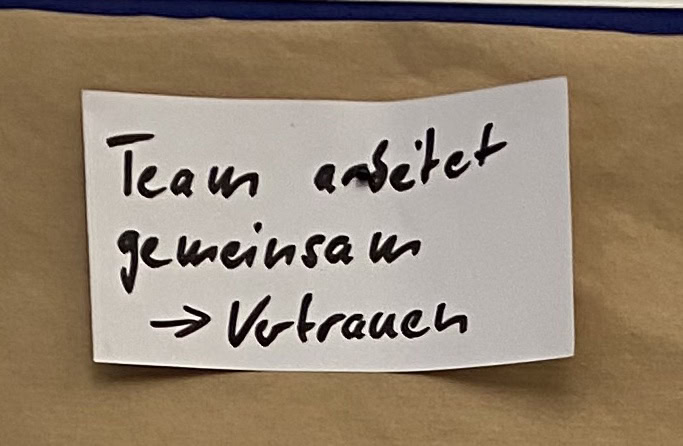 Team arbeitet
gemeinsam
→ Vertrauen